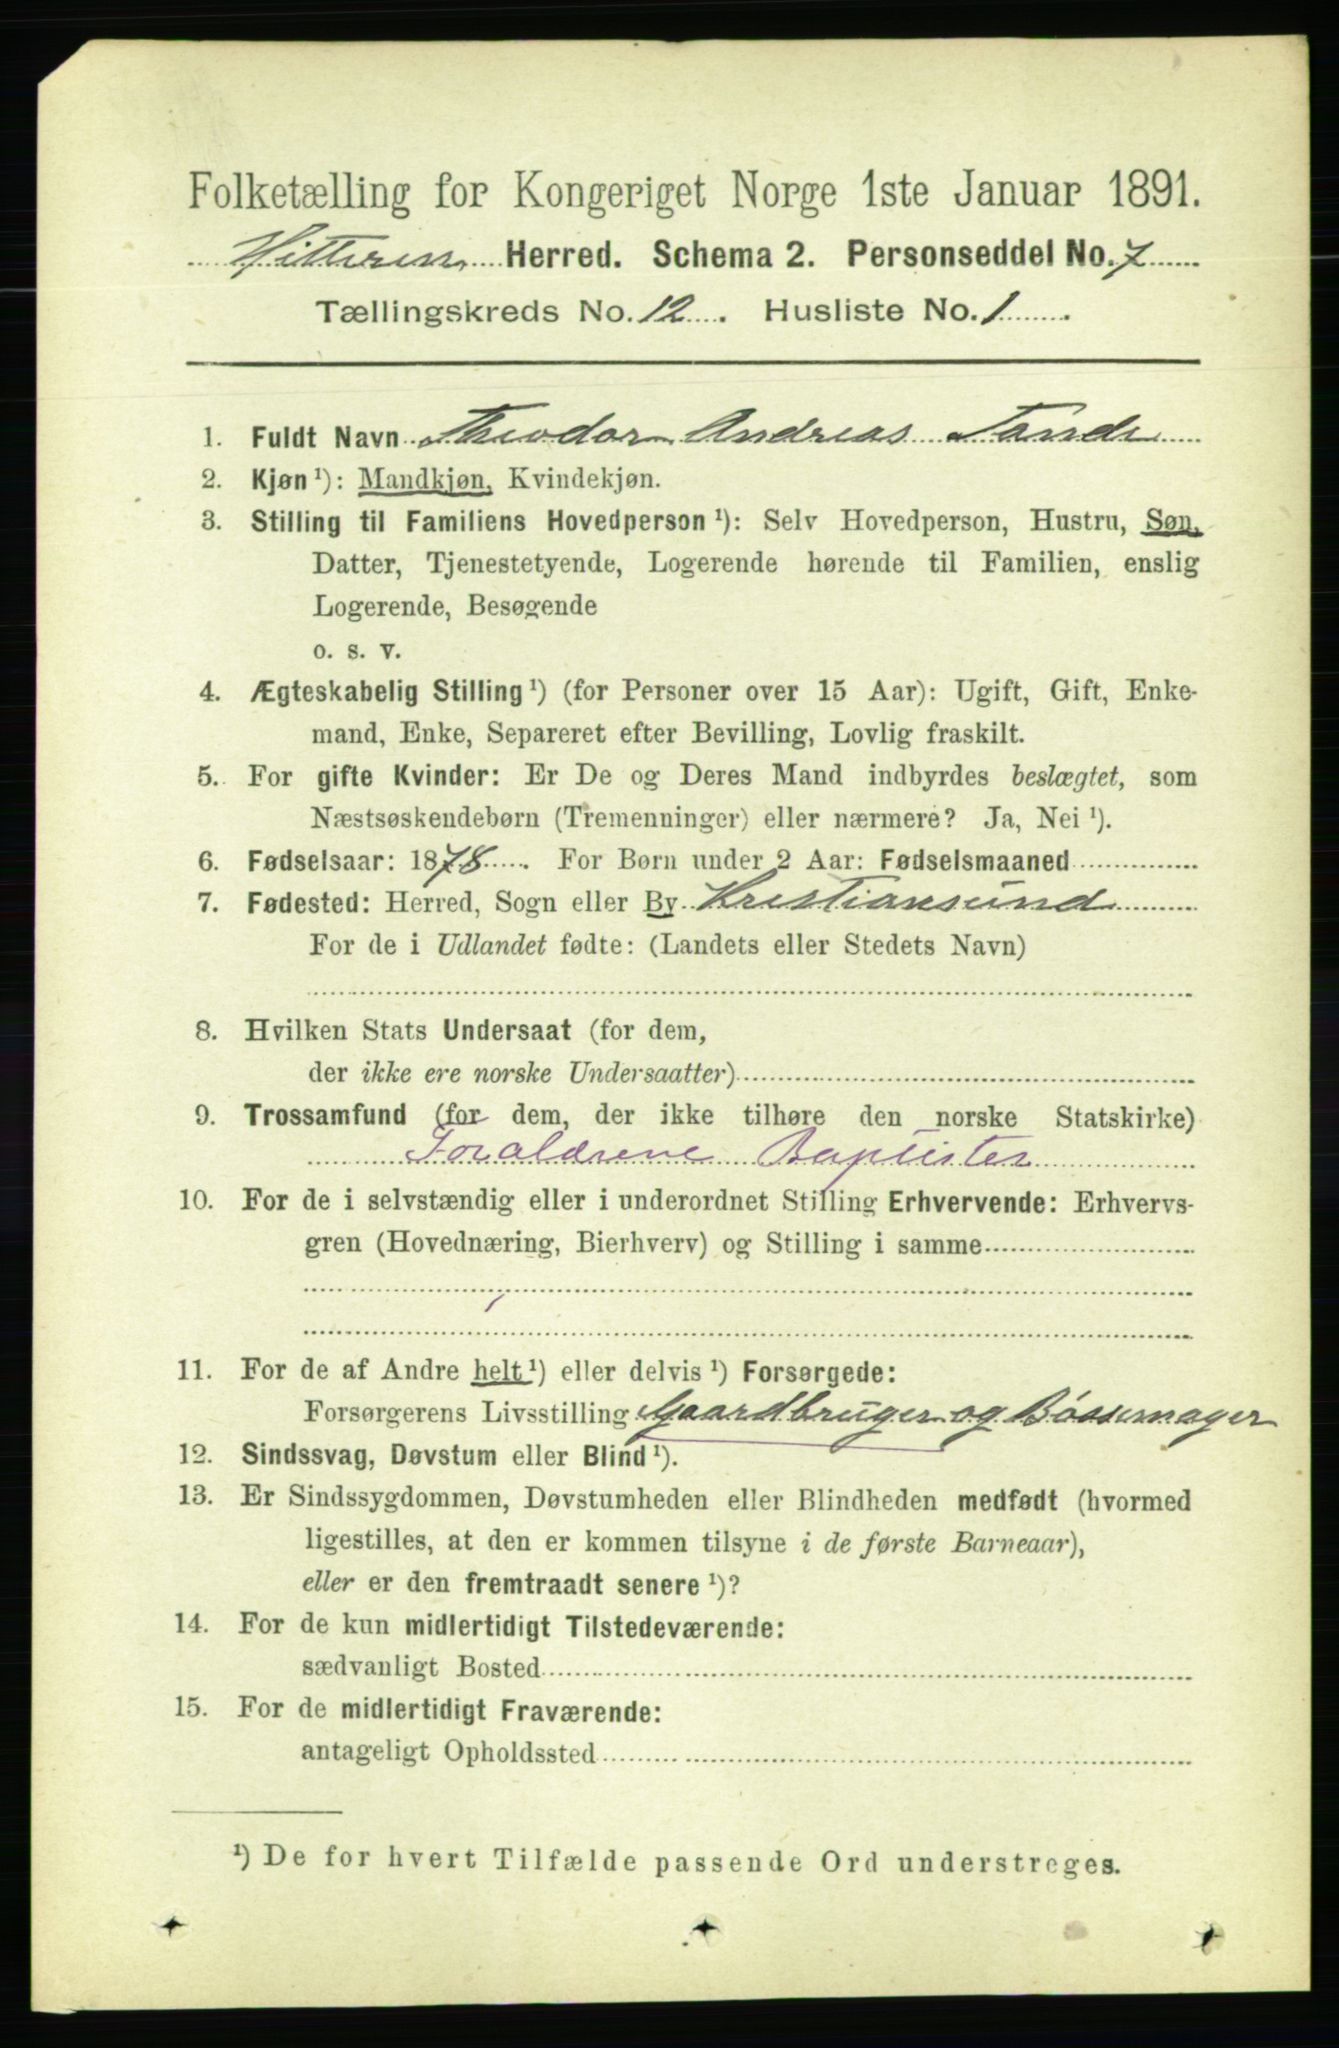 Folketælling for Kongeriget Norge 1ste Januar 1891.
Hitteren Herred. Schema 2. Personseddel No. 7
Tællingskreds No. 12. Husliste No. 1.
1. Fuldt Navn Theodor Andreas Tande
2. Kjøn ¹): Mandkjøn, Kvindekjøn.
3. Stilling til Familiens Hovedperson ¹): Selv Hovedperson, Hustru, Søn,
Datter, Tjenestetyende, Logerende hørende til Familien, enslig
Logerende, Besøgende
o. s. v.
4. Ægteskabelig Stilling ¹) (for Personer over 15 Aar): Ugift, Gift, Enke-
mand, Enke, Separeret efter Bevilling, Lovlig fraskilt.
5. For gifte Kvinder: Er De og Deres Mand indbyrdes beslægtet, som
Næstsøskendebørn (Tremenninger) eller nærmere? Ja, Nei ¹).
6. Fødselsaar: 1878. For Børn under 2 Aar: Fødselsmaaned
7. Fødested: Herred, Sogn eller By Kristiansund
For de i Udlandet fødte: (Landets eller Stedets Navn)
8. Hvilken Stats Undersaat (for dem,
der ikke ere norske Undersaatter)
9. Trossamfund (for dem, der ikke tilhøre den norske Statskirke)
Foraldrene Baptister
10. For de i selvstændig eller i underordnet Stilling Erhvervende: Erhvervs-
gren (Hovednæring, Bierhverv) og Stilling i samme
11. For de af Andre helt ¹) eller delvis ¹) Forsørgede:
Forsørgerens Livsstilling Gaardbruger og Bössemager
12. Sindssvag, Døvstum eller Blind ¹).
13. Er Sindssygdommen, Døvstumheden eller Blindheden medfødt (hvormed
ligestilles, at den er kommen tilsyne i de første Barneaar),
eller er den fremtraadt senere ¹)?
14. For de kun midlertidigt Tilstedeværende:
sædvanligt Bosted
15. For de midlertidigt Fraværende:
antageligt Opholdssted
¹) De for hvert Tilfælde passende Ord understreges.